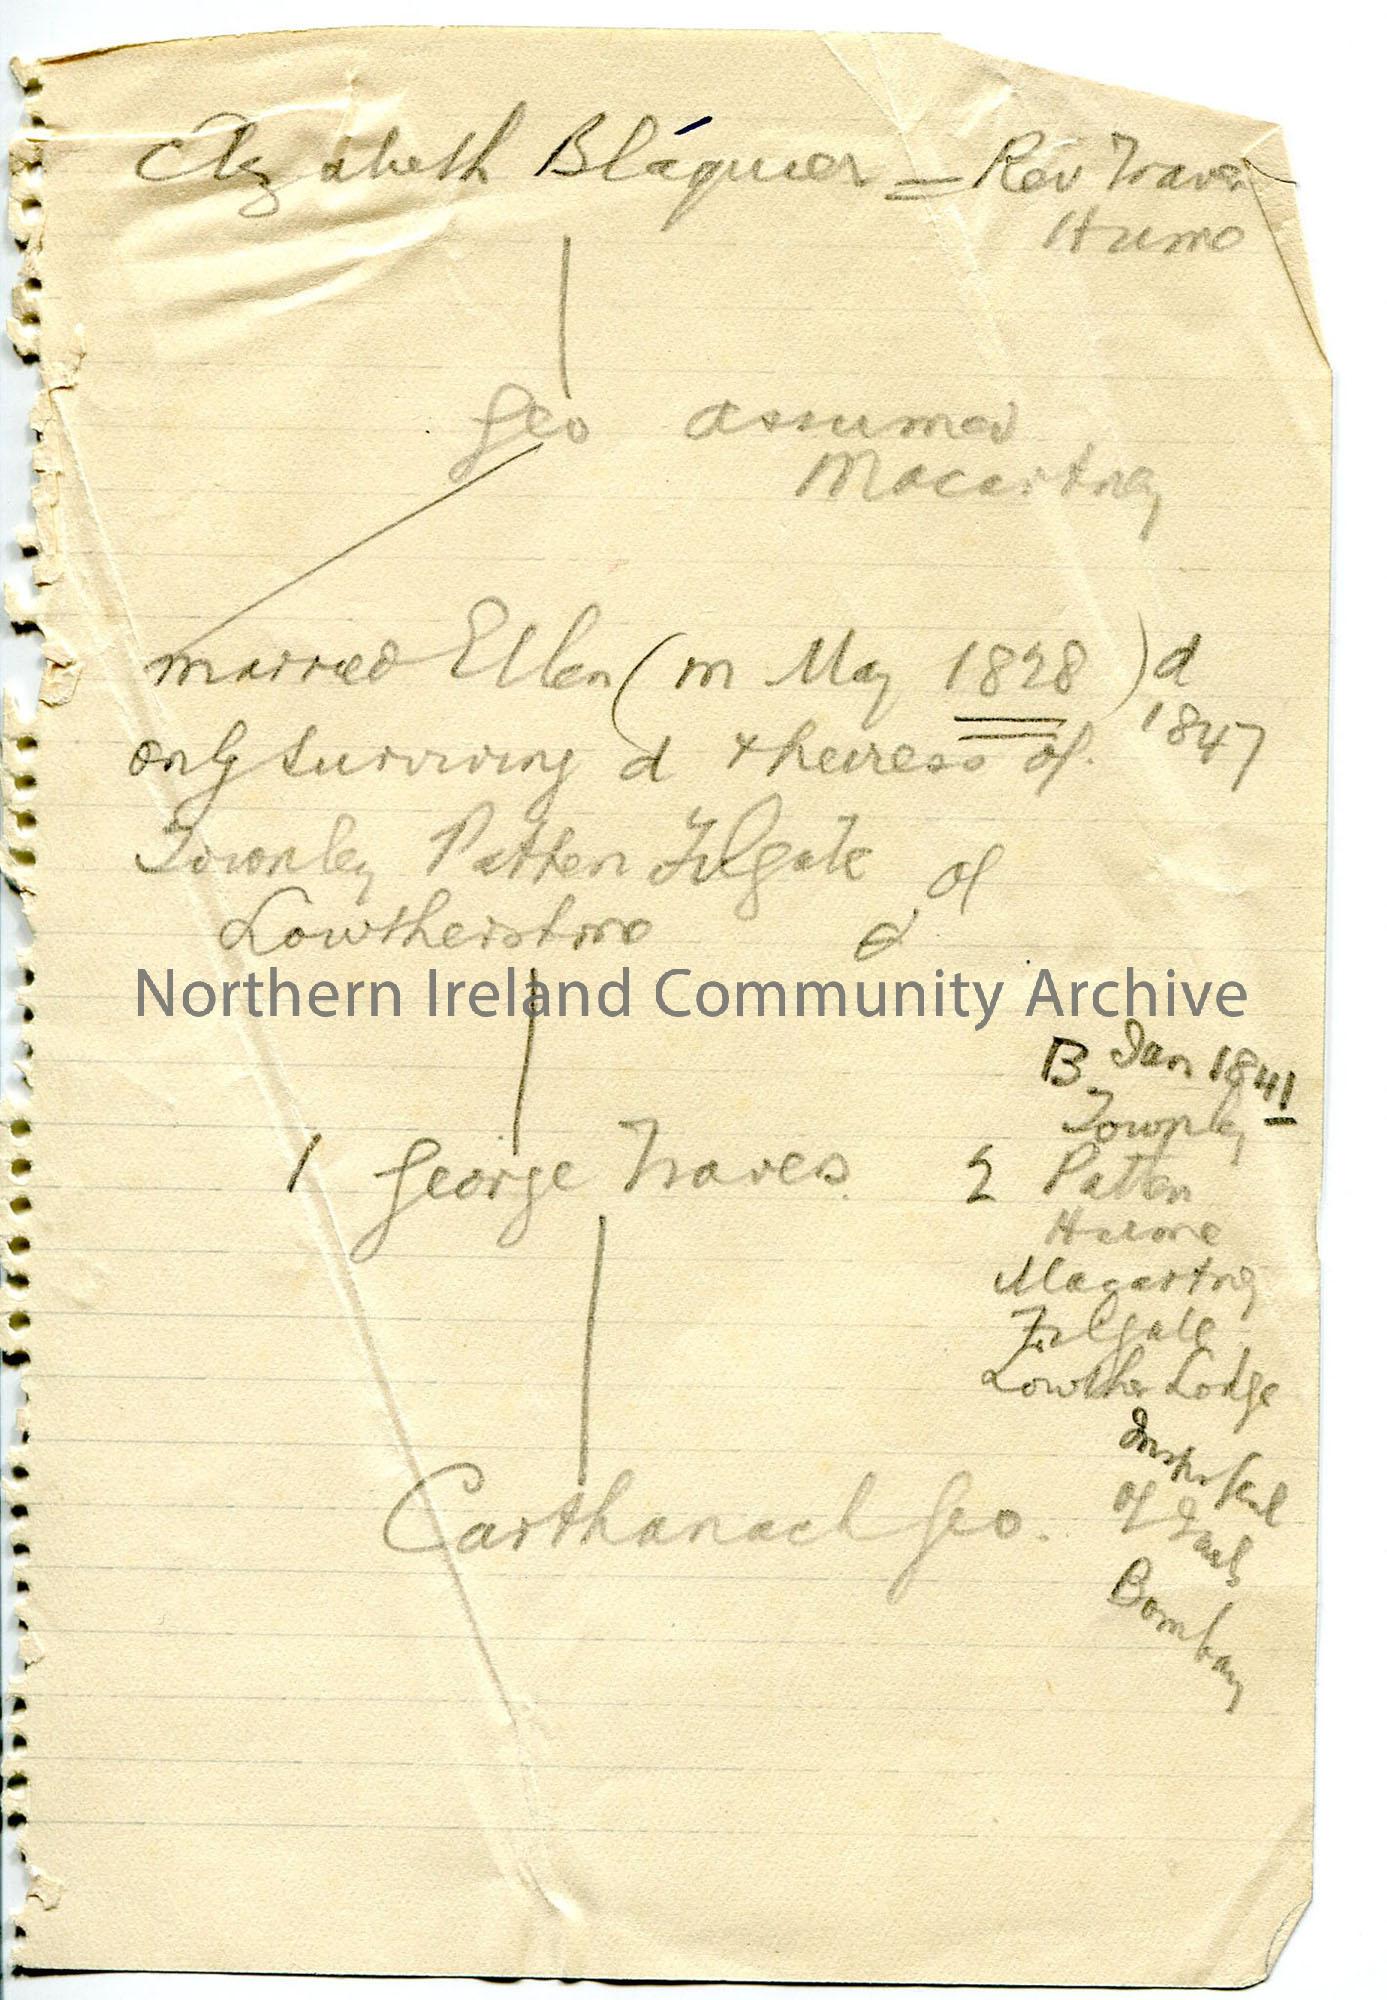 Elizabeth Bláquier = Rev Traver
Hume
Geo assumed
Macartney
married Ellen (m May 1828) d
1847
only surviving d & heiress of
Townley Patten Filgate of
Lowtherstone d
Northern Ireland Community Archive
B Jan 1841
Townley
1 George Travers. 2 Patten
Hume
Macartney
Filgate
Lowther Lodge
of
Bombay
Carthanach Geo.